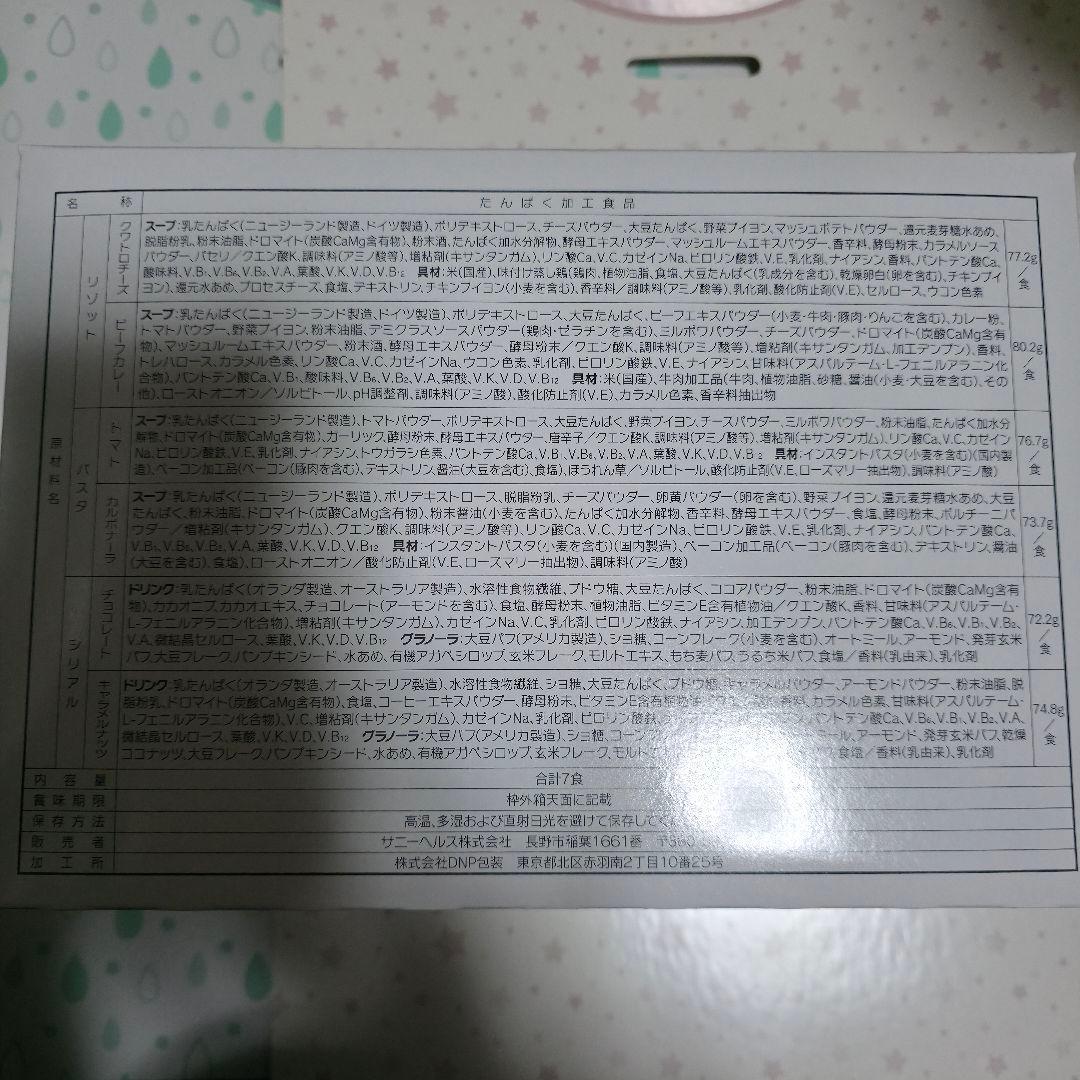 名称 たんぱく加工食品
原材料名
リゾット
クワトロチーズ
スープ:乳たんぱく(ニュージーランド製造、ドイツ製造)、ポリデキストロース、チーズパウダー、大豆たんぱく、野菜ブイヨン、マッシュポテトパウダー、還元麦芽糖水あめ、
脱脂粉乳、粉末油脂、ドロマイト(炭酸CaMg含有物)、粉末酒、たんぱく加水分解物、酵母エキスパウダー、マッシュルームエキスパウダー、香辛料、酵母粉末、カラメルソース
パウダー、パセリ/クエン酸K、調味料(アミノ酸等)、増粘剤(キサンタンガム)、リン酸Ca、V.C、カゼインNa、ピロリン酸鉄、V.E、乳化剤、ナイアシン、香料、パントテン酸Ca、
酸味料、V.B₁、V.B₆、V.B₂、V.A、葉酸、V.K、V.D、V.B₁₂ 具材:米(国産)、味付け蒸し鶏(鶏肉、植物油脂、食塩、大豆たんぱく(乳成分を含む)、乾燥卵白(卵を含む)、チキンブイ
ヨン)、還元水あめ、プロセスチーズ、食塩、デキストリン、チキンブイヨン(小麦を含む)、香辛料/調味料(アミノ酸等)、乳化剤、酸化防止剤(V.E)、セルロース、ウコン色素
77.2g/食
ビーフカレー
スープ:乳たんぱく(ニュージーランド製造、ドイツ製造)、ポリデキストロース、大豆たんぱく、ビーフエキスパウダー(小麦・牛肉・豚肉・りんごを含む)、カレー粉、
トマトパウダー、野菜ブイヨン、粉末油脂、デミグラスソースパウダー(鶏肉・ゼラチンを含む)、ミルポワパウダー、チーズパウダー、ドロマイト(炭酸CaMg含有
物)、マッシュルームエキスパウダー、粉末酒、酵母エキスパウダー、酵母粉末/クエン酸K、調味料(アミノ酸等)、増粘剤(キサンタンガム、加工デンプン)、香料、
トレハロース、カラメル色素、リン酸Ca、V.C、カゼインNa、ウコン色素、乳化剤、ピロリン酸鉄、V.E、ナイアシン、甘味料(アスパルテーム・L-フェニルアラニン化
合物)、パントテン酸Ca、V.B₁、酸味料、V.B₆、V.B₂、V.A、葉酸、V.K、V.D、V.B₁₂ 具材:米(国産)、牛肉加工品(牛肉、植物油脂、砂糖、醤油(小麦・大豆を含む)、その
他)、ローストオニオン/ソルビトール、pH調整剤、調味料(アミノ酸)、酸化防止剤(V.E)、カラメル色素、香辛料抽出物
80.2g/食
パスタ
トマト
スープ:乳たんぱく(ニュージーランド製造)、トマトパウダー、ポリデキストロース、大豆たんぱく、野菜ブイヨン、チーズパウダー、ミルポワパウダー、粉末油脂、たんぱく加水分
解物、ドロマイト(炭酸CaMg含有物)、ガーリック、酵母粉末、酵母エキスパウダー、唐辛子/クエン酸K、調味料(アミノ酸等)、増粘剤(キサンタンガム)、リン酸Ca、V.C、カゼイン
Na、ピロリン酸鉄、V.E、乳化剤、ナイアシン、トウガラシ色素、パントテン酸Ca、V.B₁、V.B₆、V.B₂、V.A、葉酸、V.K、V.D、V.B₁₂ 具材:インスタントパスタ(小麦を含む)(国内製
造)、ベーコン加工品(ベーコン(豚肉を含む)、デキストリン、醤油(大豆を含む)、食塩)、ほうれん草/ソルビトール、酸化防止剤(V.E、ローズマリー抽出物)、調味料(アミノ酸)
76.7g/食
カルボナーラ
スープ:乳たんぱく(ニュージーランド製造)、ポリデキストロース、脱脂粉乳、チーズパウダー、卵黄パウダー(卵を含む)、野菜ブイヨン、還元麦芽糖水あめ、大豆
たんぱく、粉末油脂、ドロマイト(炭酸CaMg含有物)、粉末醤油(小麦を含む)、たんぱく加水分解物、香辛料、酵母エキスパウダー、食塩、酵母粉末、ポルチーニパ
ウダー/増粘剤(キサンタンガム)、クエン酸K、調味料(アミノ酸等)、リン酸Ca、V.C、カゼインNa、ピロリン酸鉄、V.E、乳化剤、ナイアシン、パントテン酸Ca、
V.B₁、V.B₆、V.B₂、V.A、葉酸、V.K、V.D、V.B₁₂ 具材:インスタントパスタ(小麦を含む)(国内製造)、ベーコン加工品(ベーコン(豚肉を含む)、デキストリン、醤油
(大豆を含む)、食塩)、ローストオニオン/酸化防止剤(V.E、ローズマリー抽出物)、調味料(アミノ酸)
73.7g/食
シリアル
チョコレート
ドリンク:乳たんぱく(オランダ製造、オーストラリア製造)、水溶性食物繊維、ブドウ糖、大豆たんぱく、ココアパウダー、粉末油脂、ドロマイト(炭酸CaMg含有
物)、カカオニブ、カカオエキス、チョコレート(アーモンドを含む)、食塩、酵母粉末、植物油脂、ビタミンE含有植物油/クエン酸K、香料、甘味料(アスパルテーム・
L-フェニルアラニン化合物)、増粘剤(キサンタンガム)、カゼインNa、V.C、乳化剤、ピロリン酸鉄、ナイアシン、加工デンプン、パントテン酸Ca、V.B₆、V.B₁、V.B₂、
V.A、微結晶セルロース、葉酸、V.K、V.D、V.B₁₂ グラノーラ:大豆パフ(アメリカ製造)、ショ糖、コーンフレーク(小麦を含む)、オートミール、アーモンド、発芽玄米
パフ、大豆フレーク、パンプキンシード、水あめ、有機アガベシロップ、玄米フレーク、モルトエキス、もち麦パフ、うるち米パフ、食塩/香料(乳由来)、乳化剤
72.2g/食
キャラメルナッツ
ドリンク:乳たんぱく(オランダ製造、オーストラリア製造)、水溶性食物繊維、ショ糖、大豆たんぱく、ブドウ糖、キャラメルパウダー、アーモンドパウダー、粉末油脂、脱
脂粉乳、ドロマイト(炭酸CaMg含有物)、食塩、コーヒーエキスパウダー、酵母粉末、ビタミンE含有植物油 香料、カラメル色素、甘味料(アスパルテーム・
L-フェニルアラニン化合物)、V.C、増粘剤(キサンタンガム)、カゼインNa、乳化剤、ピロリン酸鉄、 パントテン酸Ca、V.B₆、V.B₁、V.B₂、V.A、
微結晶セルロース、葉酸、V.K、V.D、V.B₁₂ グラノーラ:大豆パフ(アメリカ製造)、ショ糖、コー ミール、アーモンド、発芽玄米パフ、乾燥
ココナッツ、大豆フレーク、パンプキンシード、水あめ、有機アガベシロップ、玄米フレーク、モルト 食塩/香料(乳由来)、乳化剤
74.8g/食
内容量 合計7食
賞味期限 枠外箱天面に記載
保存方法 高温、多湿および直射日光を避けて保存して
販売者 サニーヘルス株式会社 長野市稲葉1661番
加工所 株式会社DNP包装 東京都北区赤羽南2丁目10番25号